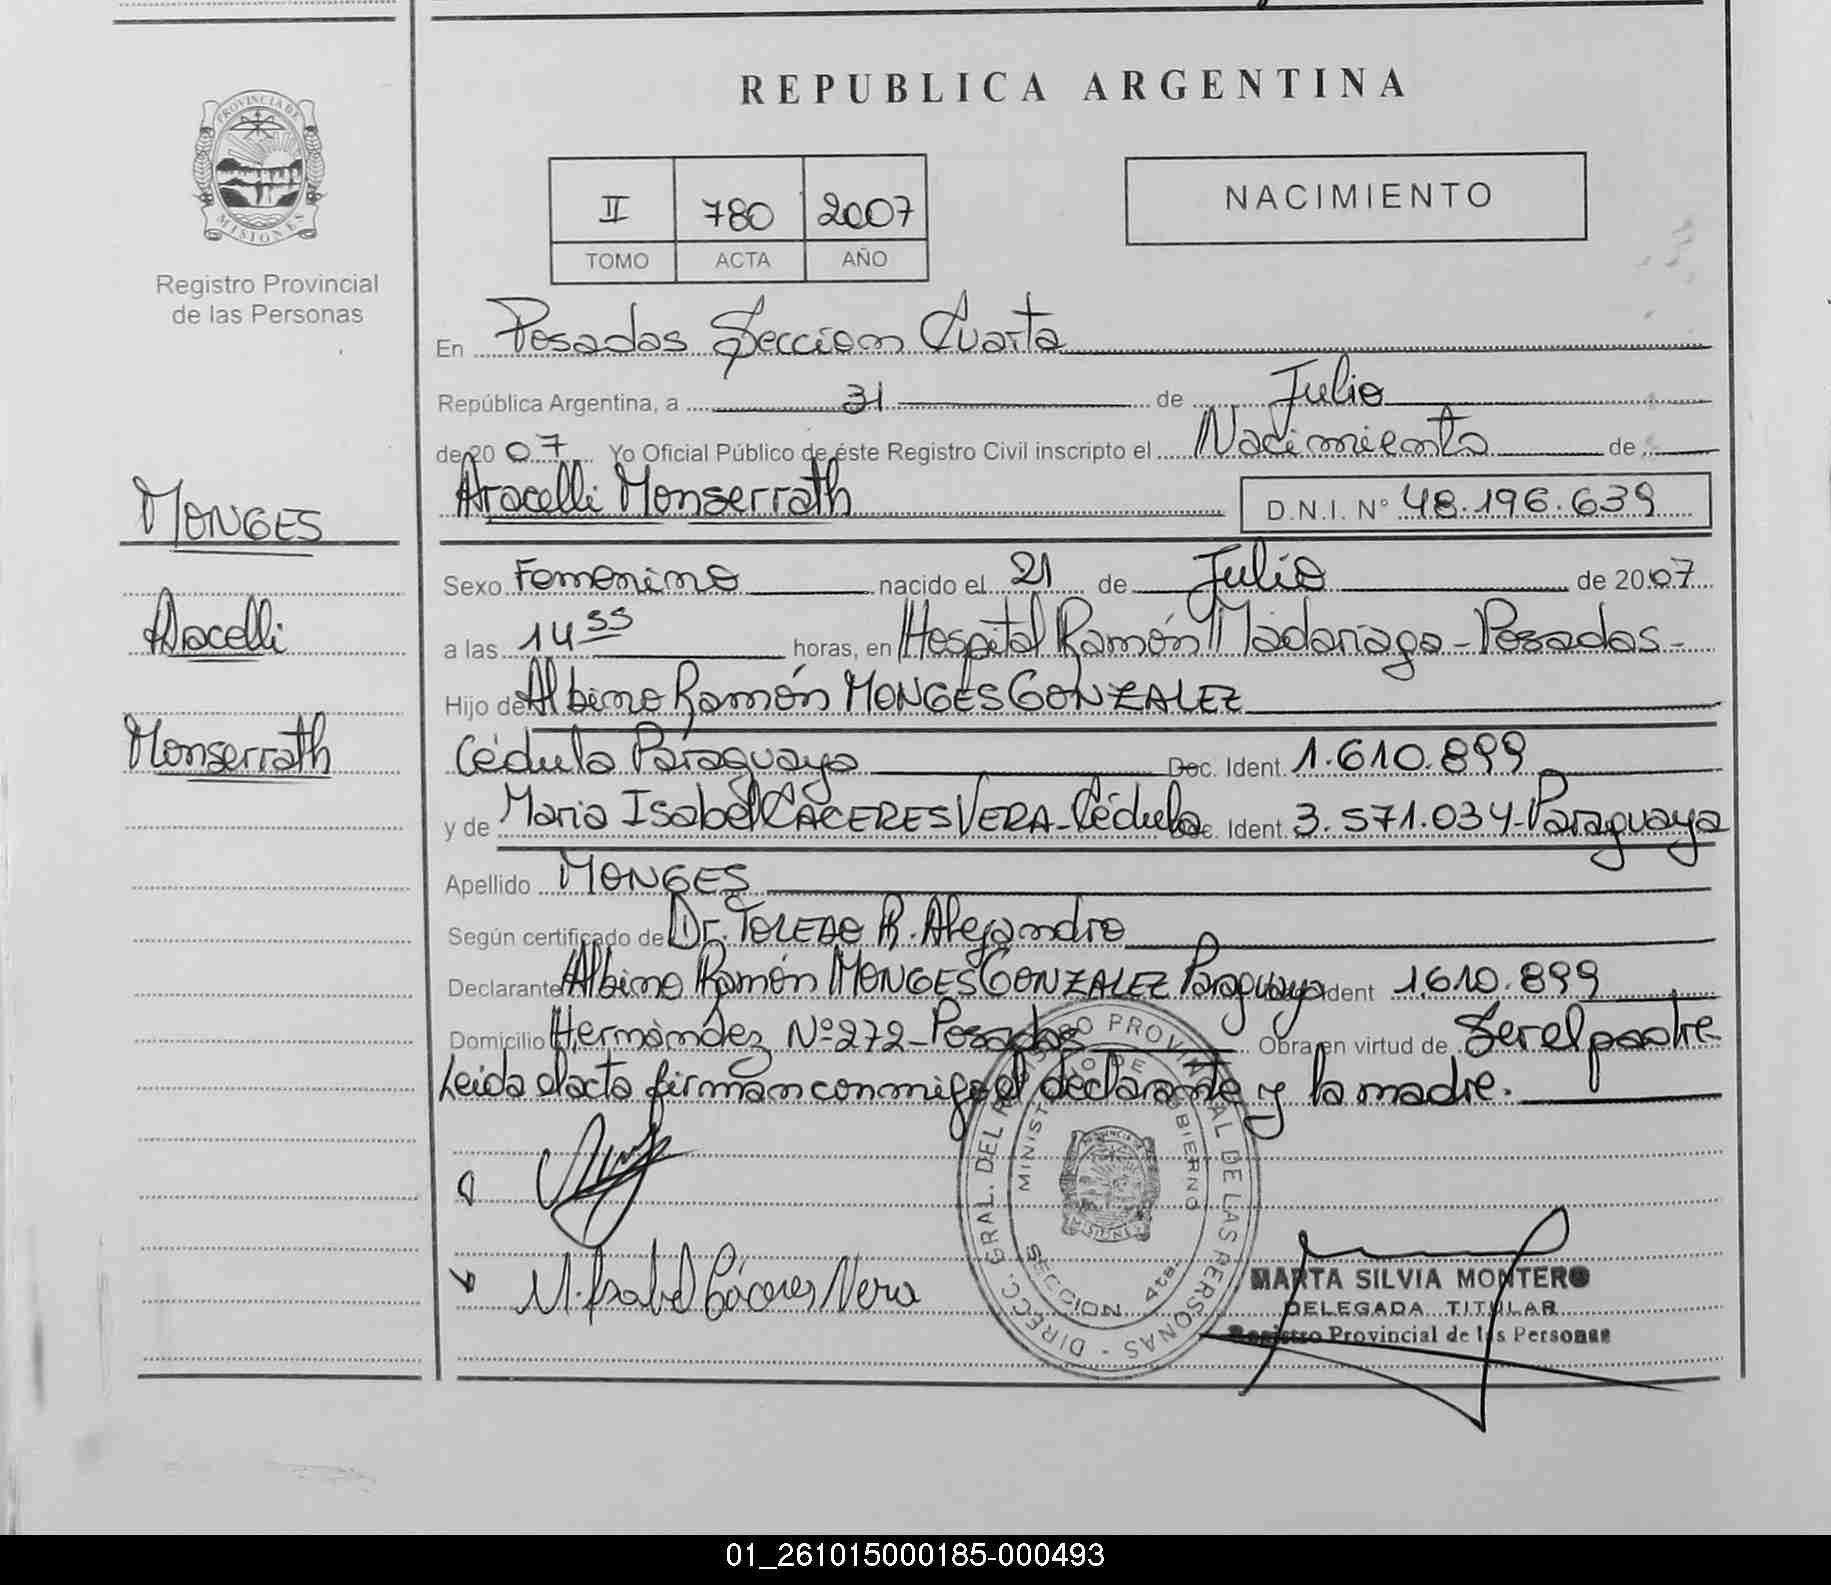 REPUBLICA ARGENTINA
PROVINCIA DE
MISIONES
Registro Provincial
de las Personas
II 780 2007
TOMO ACTA AÑO
NACIMIENTO
En Posadas Seccion Cuarta
República Argentina, a 31 de Julio
de 20 07 Yo Oficial Público de éste Registro Civil inscripto el Nacimiento de
Aracelli Monserrath D.N.I. N° 48.196.639
MONGES
Aracelli
Monserrath
Sexo Femenino nacido el 21 de Julio de 20 07
a las 14 55 horas, en Hospital Ramón Madariaga - Posadas -
Hijo de Albino Ramón MONGES GONZALEZ
Cédula Paraguaya Doc. Ident. 1.610.899
y de Maria Isabel CACERES VERA - Cédula Doc. Ident. 3.571.034 - Paraguaya
Apellido MONGES
Según certificado de Dr. TOLEDO R. Alejandro
Declarante Albino Ramón MONGES GONZALEZ Paraguaya Ident 1.610.899
Domicilio Hernández Nº 272 - Posadas Obra en virtud de Ser el padre
Leida el acta firman conmigo el declarante y la madre.
M. Isabel Cáceres Vera
DIRECC. GRAL. DEL REGISTRO PROVINCIAL DE LAS PERSONAS -
MINISTERIO DE GOBIERNO
SECCION 4ta.
MARTA SILVIA MONTERO
DELEGADA TITULAR
Registro Provincial de las Personas
01_261015000185-000493